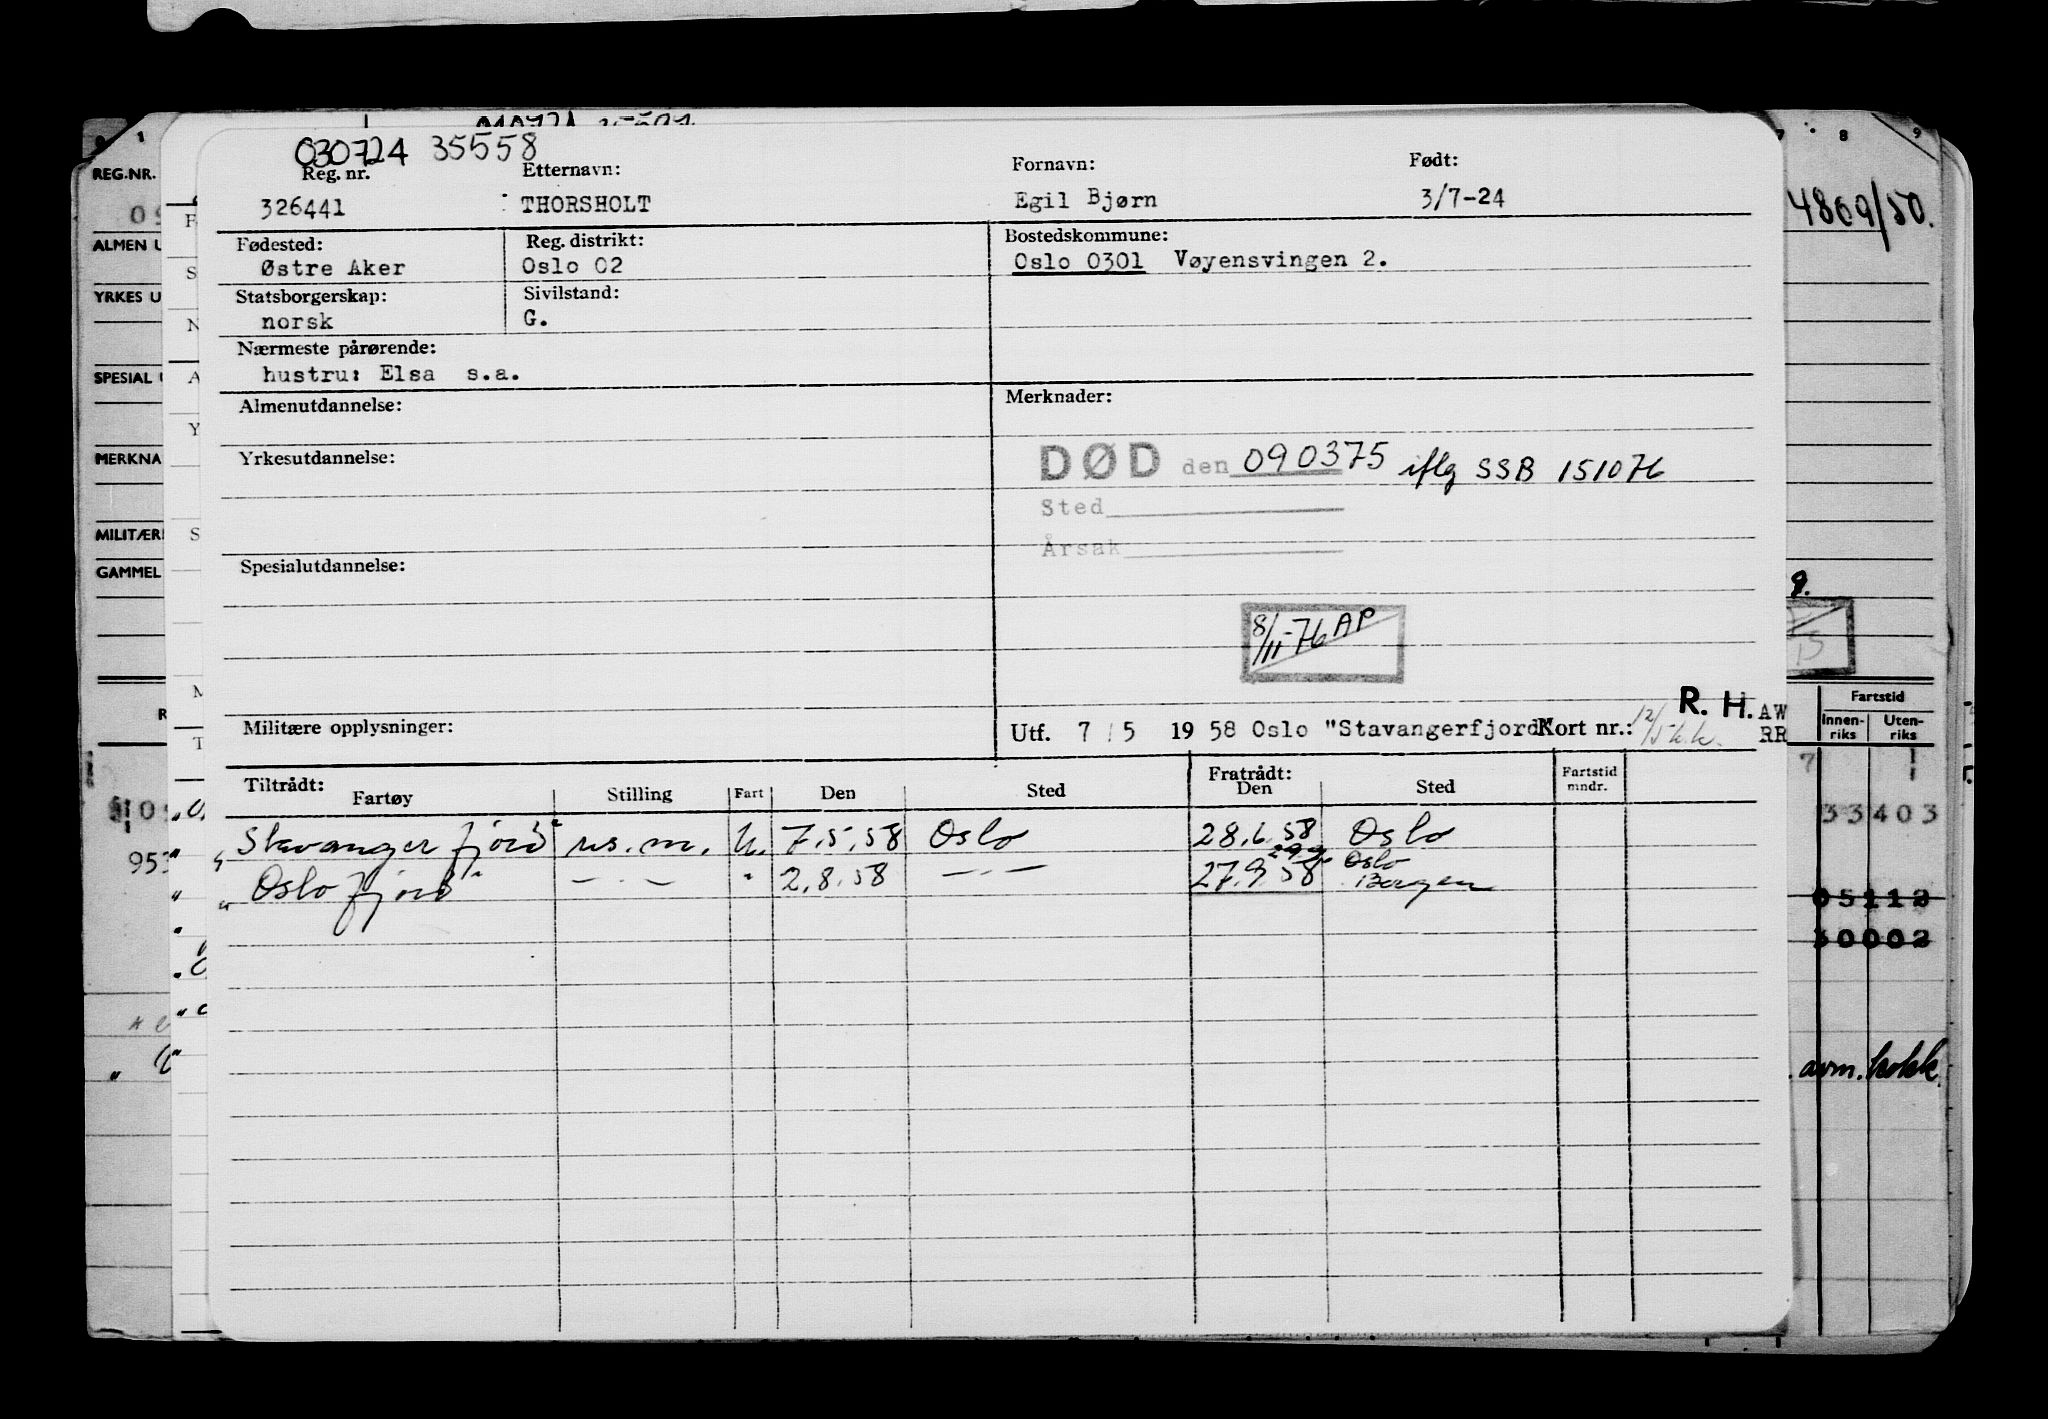 030724 35558
Reg. nr. Etternavn: Fornavn: Født:
326441 THORSHOLT Egil Bjørn 3/7-24
Fødested: Reg. distrikt: Bostedskommune:
Østre Aker Oslo 02 Oslo 0301 Vøyensvingen 2.
Statsborgerskap: Sivilstand:
norsk G.
Nærmeste pårørende:
hustru: Elsa s.a.
Almenutdannelse: Merknader:
DØD den 090375 iflg SSB 151076
Yrkesutdannelse:
Sted
Årsak
Spesialutdannelse:
8/11-76 AP
R. H.
Militære opplysninger: Utf. 7/5 1958 Oslo "Stavangerfjord" Kort nr.:
Tiltrådt: Fratrådt:
Fartøy Stilling Fart Den Sted Den Sted Fartstid mndr.
"Stavangerfjord" us. m. U. 7.5.58 Oslo 28.6.58 Oslo
29.9 Oslo
"Oslofjord" — . — " 2.8.58 — . — 27.9.58 Bergen
0 1
REG.NR.
ALMEN U
YRKES U
SPESIAL U
MERKNA
MILITÆR
GAMMEL
953
7 8 9
4869/50.
9.
Fartstid
Innen-riks Uten-riks
AW
RR
33403
05112
30002
avm. kokk.